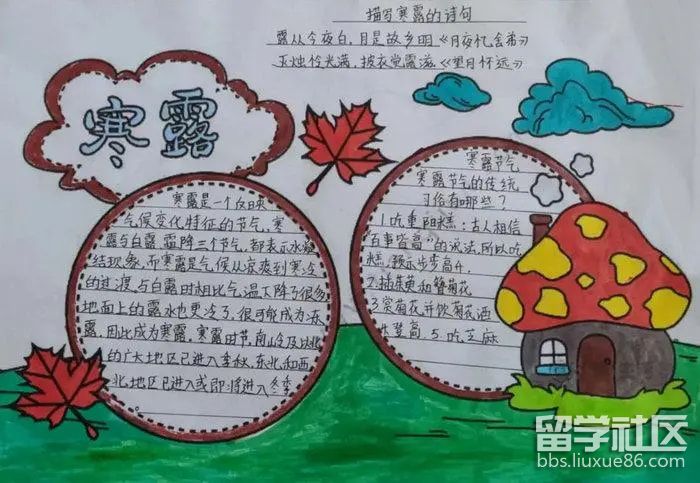 描写寒露的诗句
露从今夜白,月是故乡明《月夜忆舍弟》
灭烛怜光满,披衣觉露滋《望月怀远》
寒露
寒露是一个反映
气候变化特征的节气,寒
露与白露、霜降三个节气,都表示水凝
结现象,而寒露是气候从凉爽到寒冷
的过渡,与白露时相比气温下降了很多
地面上的露水也更冷了,很可能成为冻
露,因此成为寒露,寒露时节,南岭及以北
的广大地区已进入季秋,东北和西
北地区已进入或即将进入冬季
寒露节气
寒露节气的传统
习俗有哪些?
1.吃重阳糕:古人相信
“百事皆高”的说法,所以吃
糕,预示步步高升,
2.插茱萸和簪菊花
3.赏菊花并饮菊花酒
4.登高,5.吃芝麻
留学社区
bbs.liuxue86.com